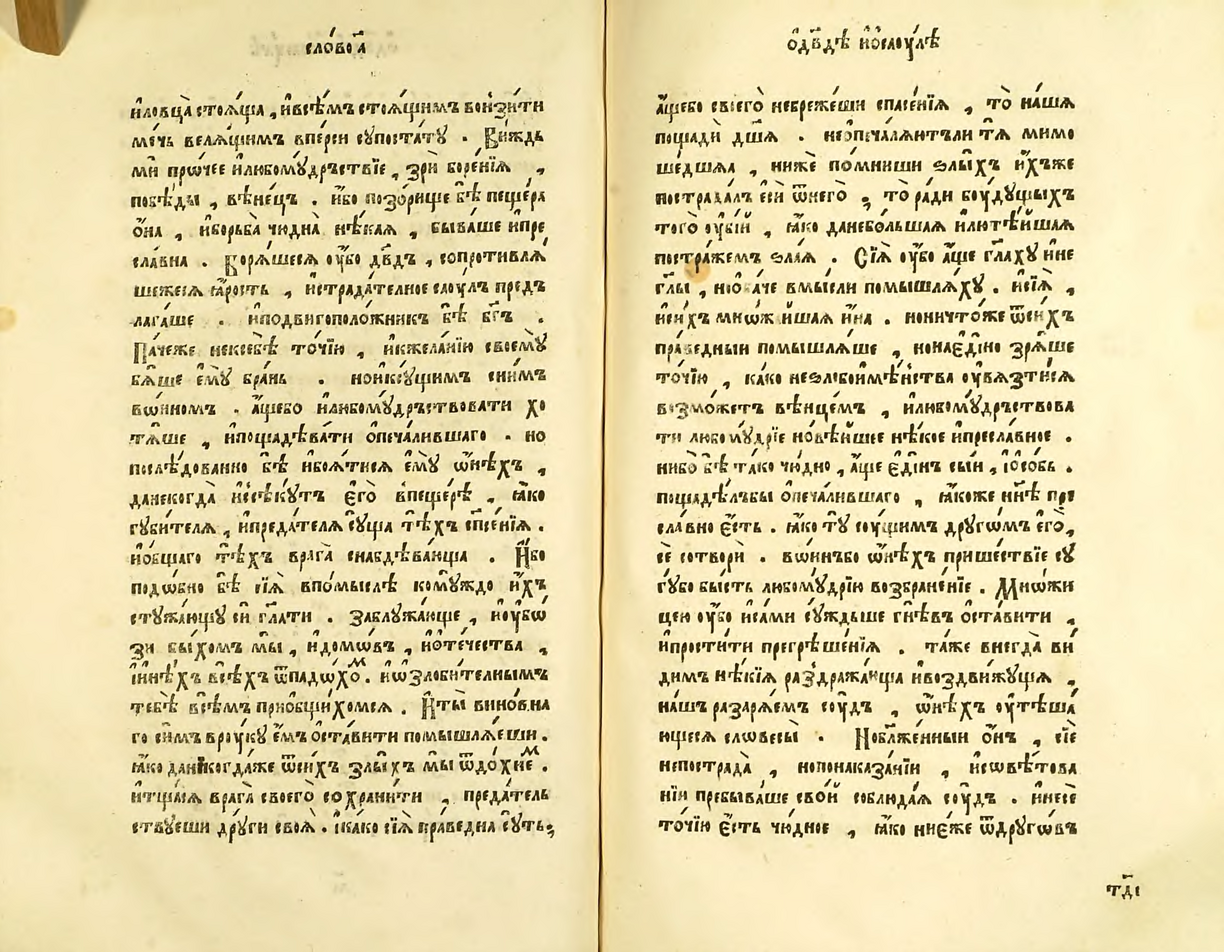 сло́во а҃
и҆ловца̀ стоѧ́ща , и҆всѣ́мъ стоѧ́щимъ вонзи́ти
ме́чь велѧ́щимъ впе́рси сꙋпоста́тꙋ . Ви́ждь
ми про́чее и҆любомꙋ́дрьствїе , зрѝ боре́нїѧ ,
побѣ́ды , вѣне́цъ . и҆бо позо́рище бѣ̀ пеще́ра
ѻ҆на , и҆борьба̀ чю́дна нѣ́каѧ , быва́ше и҆пре
сла́вна . Борѧ́шесѧ ᲂу҆́бо дв҃дъ , сопротивлѧ́
шежесѧ ꙗ҆́рость , и҆страда́телное саꙋ́лъ предъ
лага́ше . и҆подвигополо́жникъ бѣ̀ бг҃ъ .
Па́чеже некⸯсебѣ̀ то́чїю , и҆кжела́нїю своемꙋ̀
бѧ́ше є҆мꙋ̀ бра́нь . ноиксꙋ́щимъ сни́мъ
во́иномъ . а҆́щебо и҆любомꙋ́дрьствовати хо
тѧ́ше , и҆пощадѣва́ти ѻ҆печа́лившаго . но
послѣ́дованно бѣ̀ и҆боѧ́тисѧ є҆мꙋ̀ ѻ҆нѣ́хъ ,
данекогда̀ и҆ссѣкꙋ́тъ є҆го̀ впеще́рѣ , ꙗ҆́ко
гꙋби́телѧ , и҆преда́телѧ сꙋ́ща тѣ́хъ сп҃се́нїѧ .
и҆ѻ҆́бщаго тѣ́хъ врага̀ снабдѣва́юща . И҆́бо
подо́бно бѣ̀ сїѧ̀ впо́мыслѣ комꙋ́ждо и҆́хъ
стꙋжа́ющꙋ си гл҃ати . заблꙋжа́юще , и҆ᲂу҆бѡ́
зи бы́хомъ мы̀ , и҆домо́въ , и҆ѻ҆те́чества ,
и҆и҆нѣ́хъ всѣ́хъ ѿпадо́хоⷨ . и҆ѡ҆зло́бителнымъ
тебѣ̀ всѣ́мъ прио҆бщи́хомсѧ . И҆ты̀ вино́вна
го си́мъ врꙋ́кꙋ є҆́мъ ѡ҆ста́вити помышлѧ́еши .
ꙗ҆́ко даникогда́же ѿси́хъ злы́хъ мы̀ ѿдо́хнеⷨ .
и҆тщи́сѧ врага̀ своего̀ сохрани́ти , преда́тель
ствꙋеши дрꙋ́ги своѧ̀ . і҆ка́ко сїѧ̀ пра́ведна сꙋ́ть ;
ѻ҆дв҃дѣ и҆ѻ҆саꙋ́лѣ
а҆́щебо своего̀ небреже́ши спасе́нїѧ , то̀ на́шѧ
пощадѝ дш҃ѧ . неѻ҆печалѧ́ютъли тѧ̀ мимо
ше́дшаѧ , нижѐ по́мниши ѕлы́хъ и҆́хъже
пострада́лъ є҆сѝ ѿнего̀ ; то̀ ра́ди бꙋ́дꙋщыхъ
того̀ ᲂу҆бі́й , ꙗ҆́ко данебо́льшаѧ и҆лютѣ́йшаѧ
постра́жемъ ѕла́ѧ . Сїѧ̀ ᲂу҆́бо а҆́ще гл҃ахꙋ и҆не
гл҃ы , ною҆ба́че вмы́сли помышлѧ́хꙋ . и҆сїѧ̀ ,
и҆си́хъ мно́жⸯйшаѧ и҆́на . нони́чтоже ѿси́хъ
пра́ведныи помышлѧ́ше , нонаєди́но зрѧ́ше
то́чїю , ка́ко неѕло́боименства ᲂу҆вѧзти́сѧ
возмо́жетъ вѣнце́мъ , и҆любомꙋ́дрьствова
ти любомꙋ́дрїе новѣ́йшее нѣ́кое и҆пресла́вное .
нибо бѣ̀ та́ко чю́дно , а҆́ще є҆ди́нъ сы́и , і҆ѻ҆со́бь .
пощадѣ́лъбы ѻ҆печа́лившаго , ꙗ҆́коже нн҃ѣ пре
сла́вно є҆́сть . ꙗ҆́ко тꙋ̀ сꙋ́щимъ дрꙋго́мъ є҆го̀ ,
сѐ сотворѝ . во́инъбо ѻ҆нѣ́хъ прише́ствїе сꙋ
гꙋ́бо бы́сть любомꙋ́дрїю возбране́нїе . Мно́жи
цею ᲂу҆́бо и҆са́ми сꙋ́ждьше гнѣ́въ ѡ҆ста́вити ,
и҆прости́ти прегрѣше́нїѧ . та́же внегда̀ ви
димъ нѣ́кїѧ раздража́юща и҆воздви́жꙋщѧ ,
на́шъ разарѧ́емъ сꙋ́дъ , ѻ҆нѣ́хъ ᲂу҆тѣша́
ющесѧ словесы̀ . Ноблаже́нныи ѻ҆́нъ , сїѐ
непострада̀ , нопонаказа́нїи , и҆совѣ́това
нїи пребыва́ше сво́й соблюда́ѧ сꙋ́дъ . и҆несѐ
то́чїю є҆́сть чю́дное , ꙗ҆́ко ниєже ѿдрꙋго́въ
тд҃і